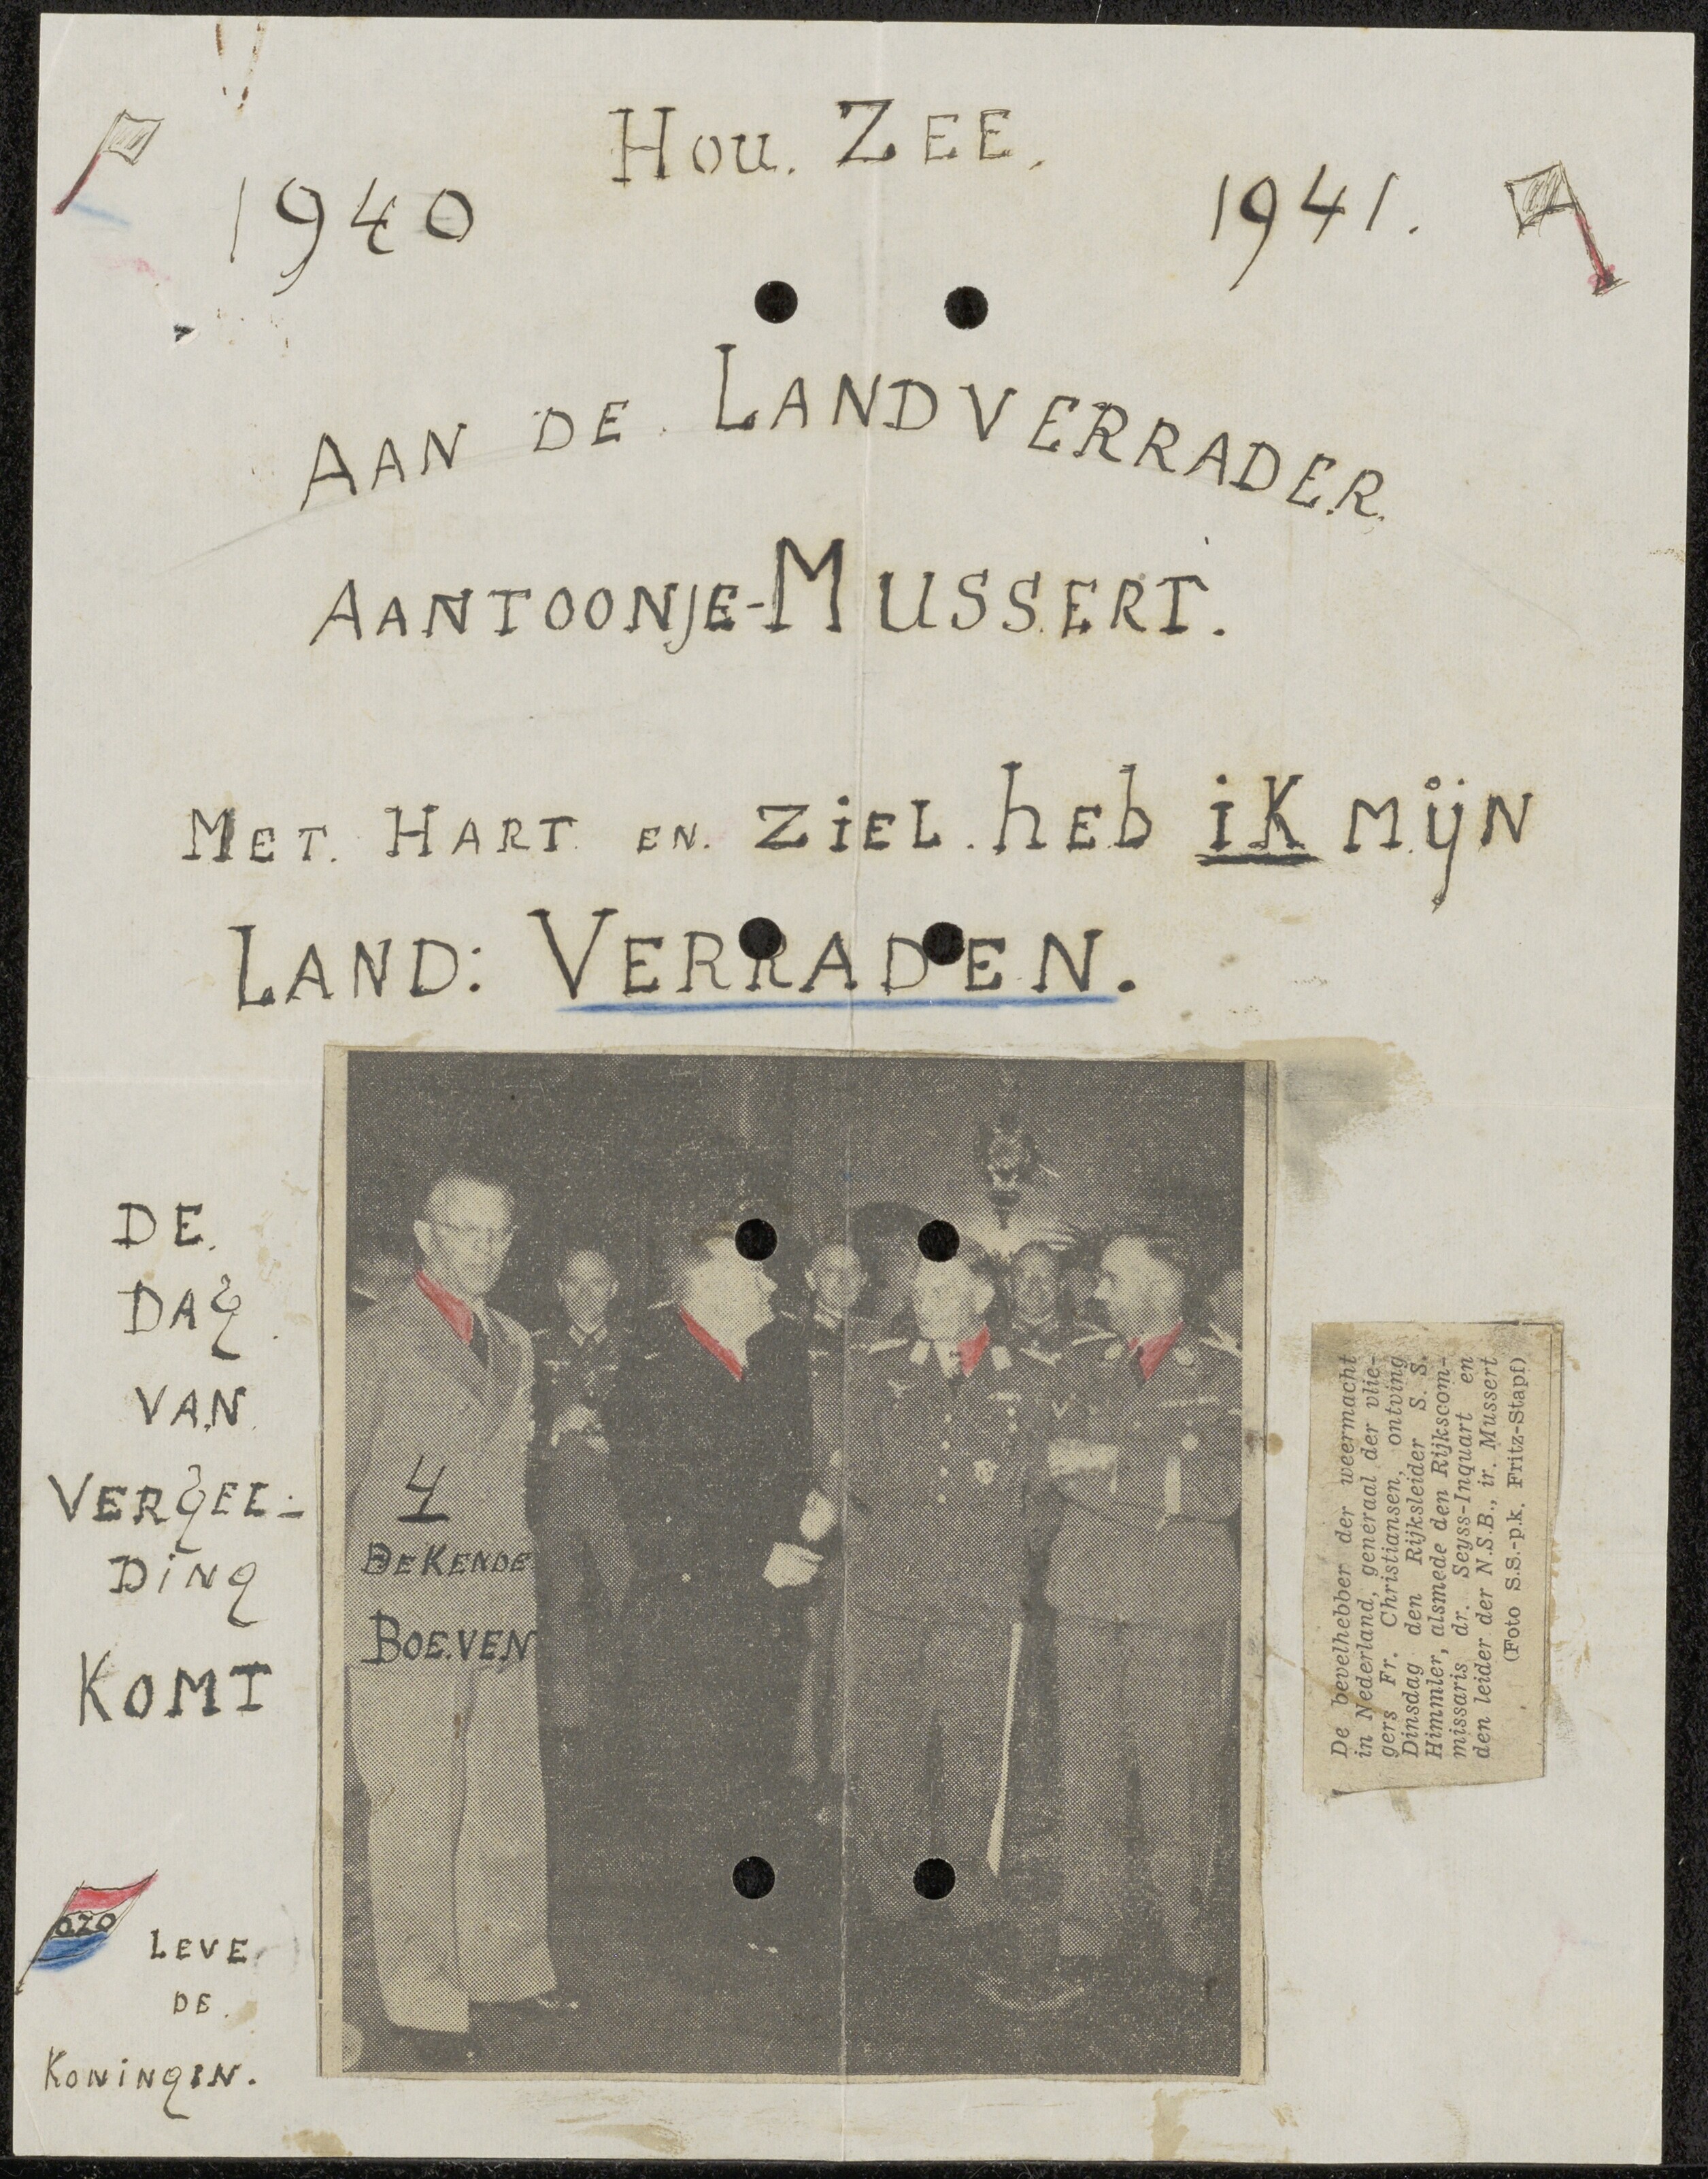 HOU. ZEE.
1940
1941.
AAN DE LANDVERRADER.
AANTOONJE-MUSSERT.
MET. HART EN. ZiEL. hEb iK MijN
LAND: VERRADEN.
DE.
DAG.
VAN.
VERGEE-
DiNG
KOMT
4
BEKENDE
BOEVEN
OZO
LEVE
DE.
KONiNGIN.
De bevelhebber der weermacht
in Nederland, generaal der vlie-
gers Fr. Christiansen, ontving
Dinsdag den Rijksleider S. S.
Himmler, alsmede den Rijkscom-
missaris dr. Seyss-Inquart en
den leider der N.S.B., ir. Mussert
(Foto S.S.-p.k. Fritz-Stapf)